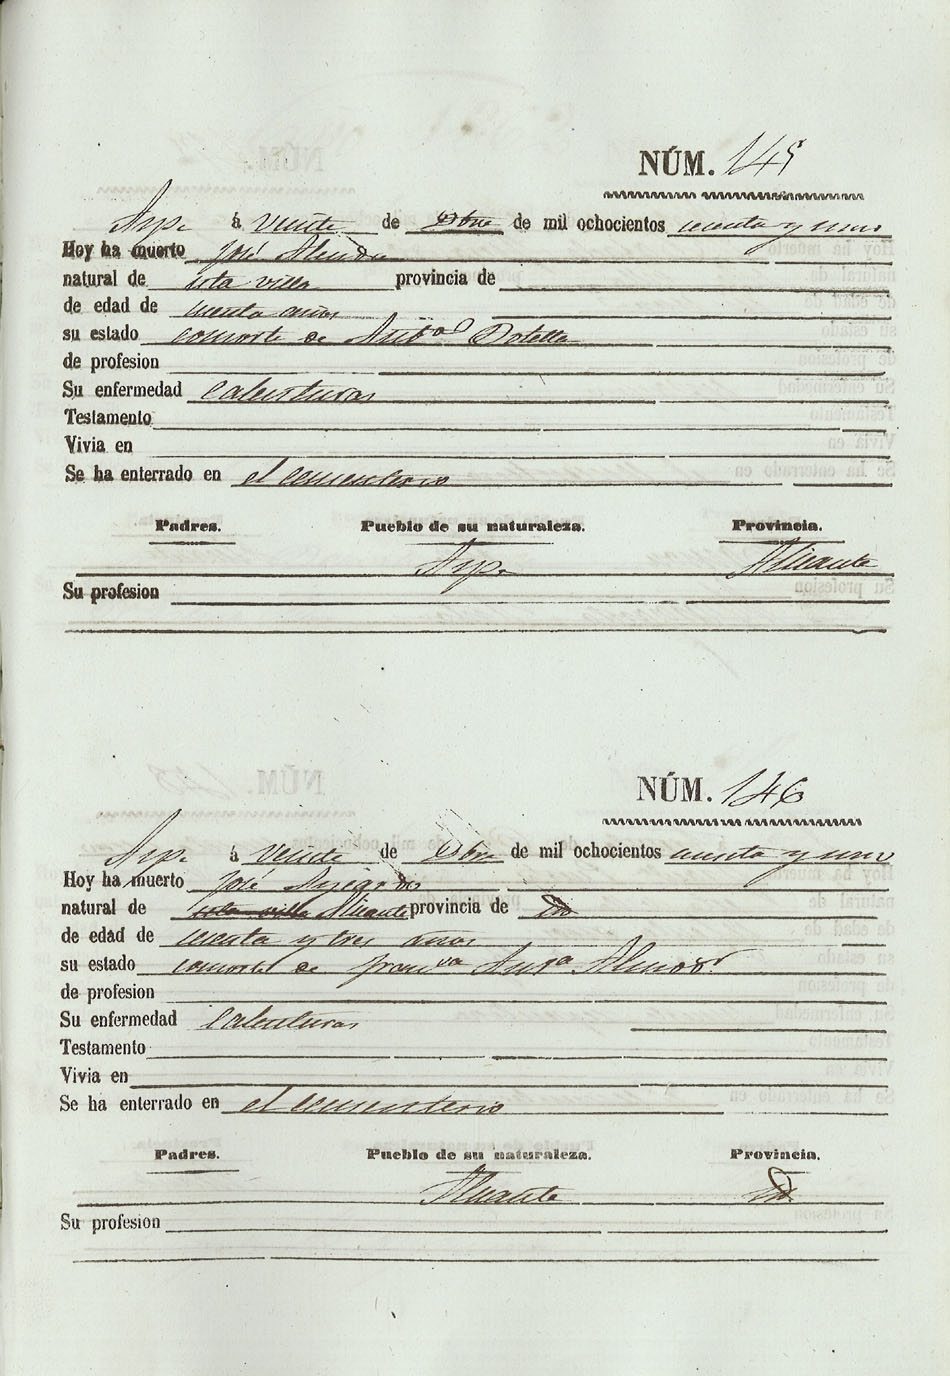 NÚM. 145
Aspe á veinte de Obre de mil ochocientos sesenta y uno
Hoy ha muerto José
natural de esta villa provincia de
de edad de años
su estado consorte de Botella
de profesion
Su enfermedad Calenturas
Testamento
Vivia en
Se ha enterrado en el cementerio
Padres. Pueblo de su naturaleza. Provincia.
Aspe Alicante
Su profesion
NÚM. 146
Aspe á veinte de Obre de mil ochocientos sesenta y uno
Hoy ha muerto José
natural de esta villa Alicante provincia de
de edad de sesenta y tres años
su estado consorte de
de profesion
Su enfermedad Calenturas
Testamento
Vivia en
Se ha enterrado en el cementerio
Padres. Pueblo de su naturaleza. Provincia.
Alicante
Su profesion